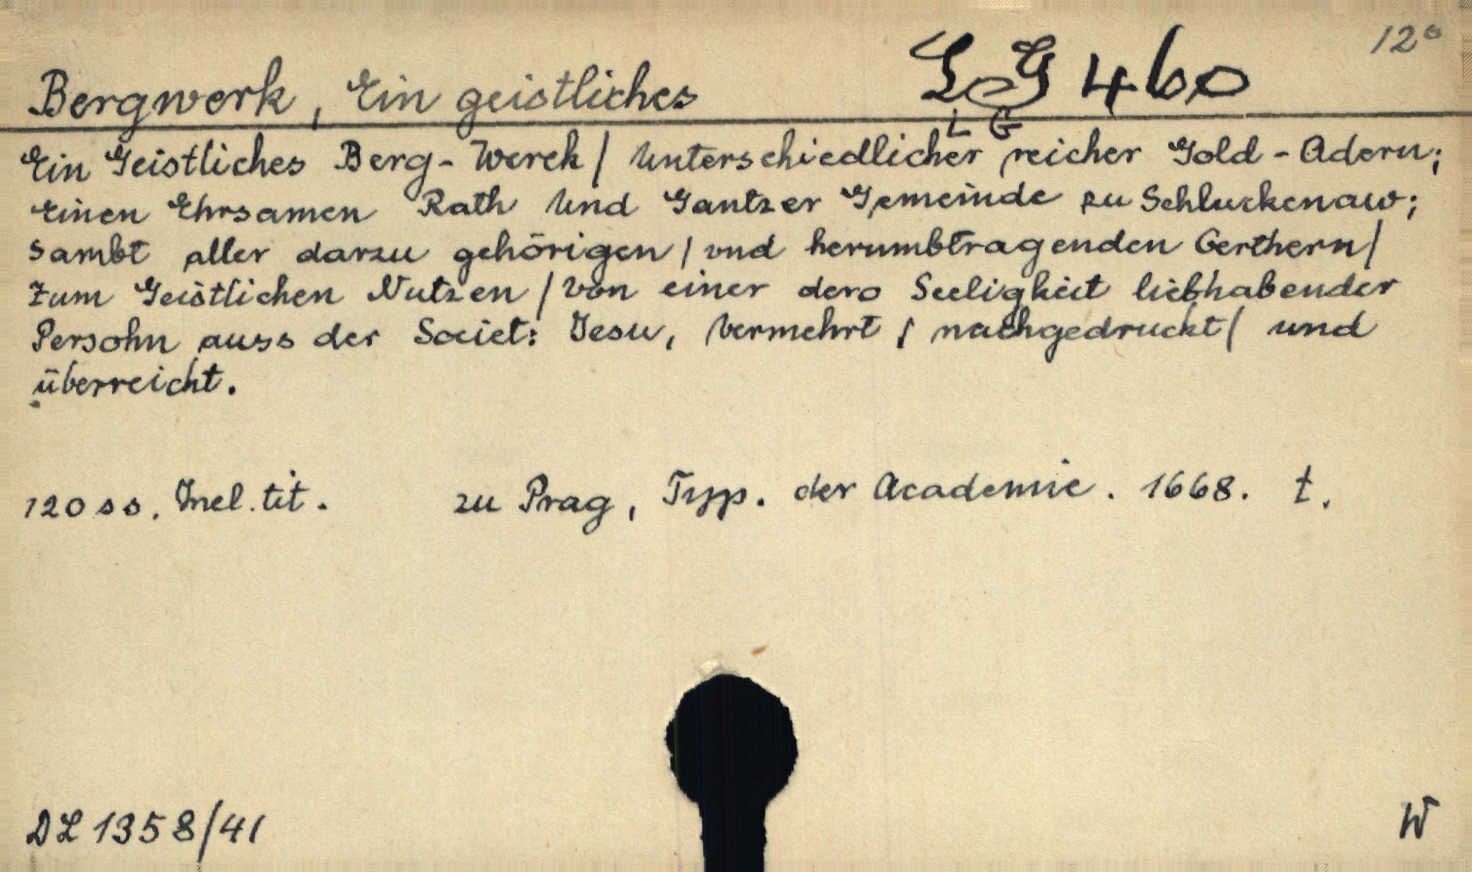 12°
Bergwerk, Ein geistliches LeG 460
L G
Ein Geistliches Berg-Werck / Unterschiedlicher reicher Gold-Adern;
Einen Ehrsamen Rath Und Gantzer Gemeinde zu Schluckenaw;
sambt aller darzu gehörigen / vnd herumbtragenden Oerthern/
zum Geistlichen Nutzen / Von einer dero Seeligkeit liebhabender
Persohn auss der Societ: Jesu, Vermehrt / nachgedruckt/ und
überreicht.
120 ss. Incl. tit. zu Prag, Typ. der Academie. 1668. t.
DL 1358/41 W